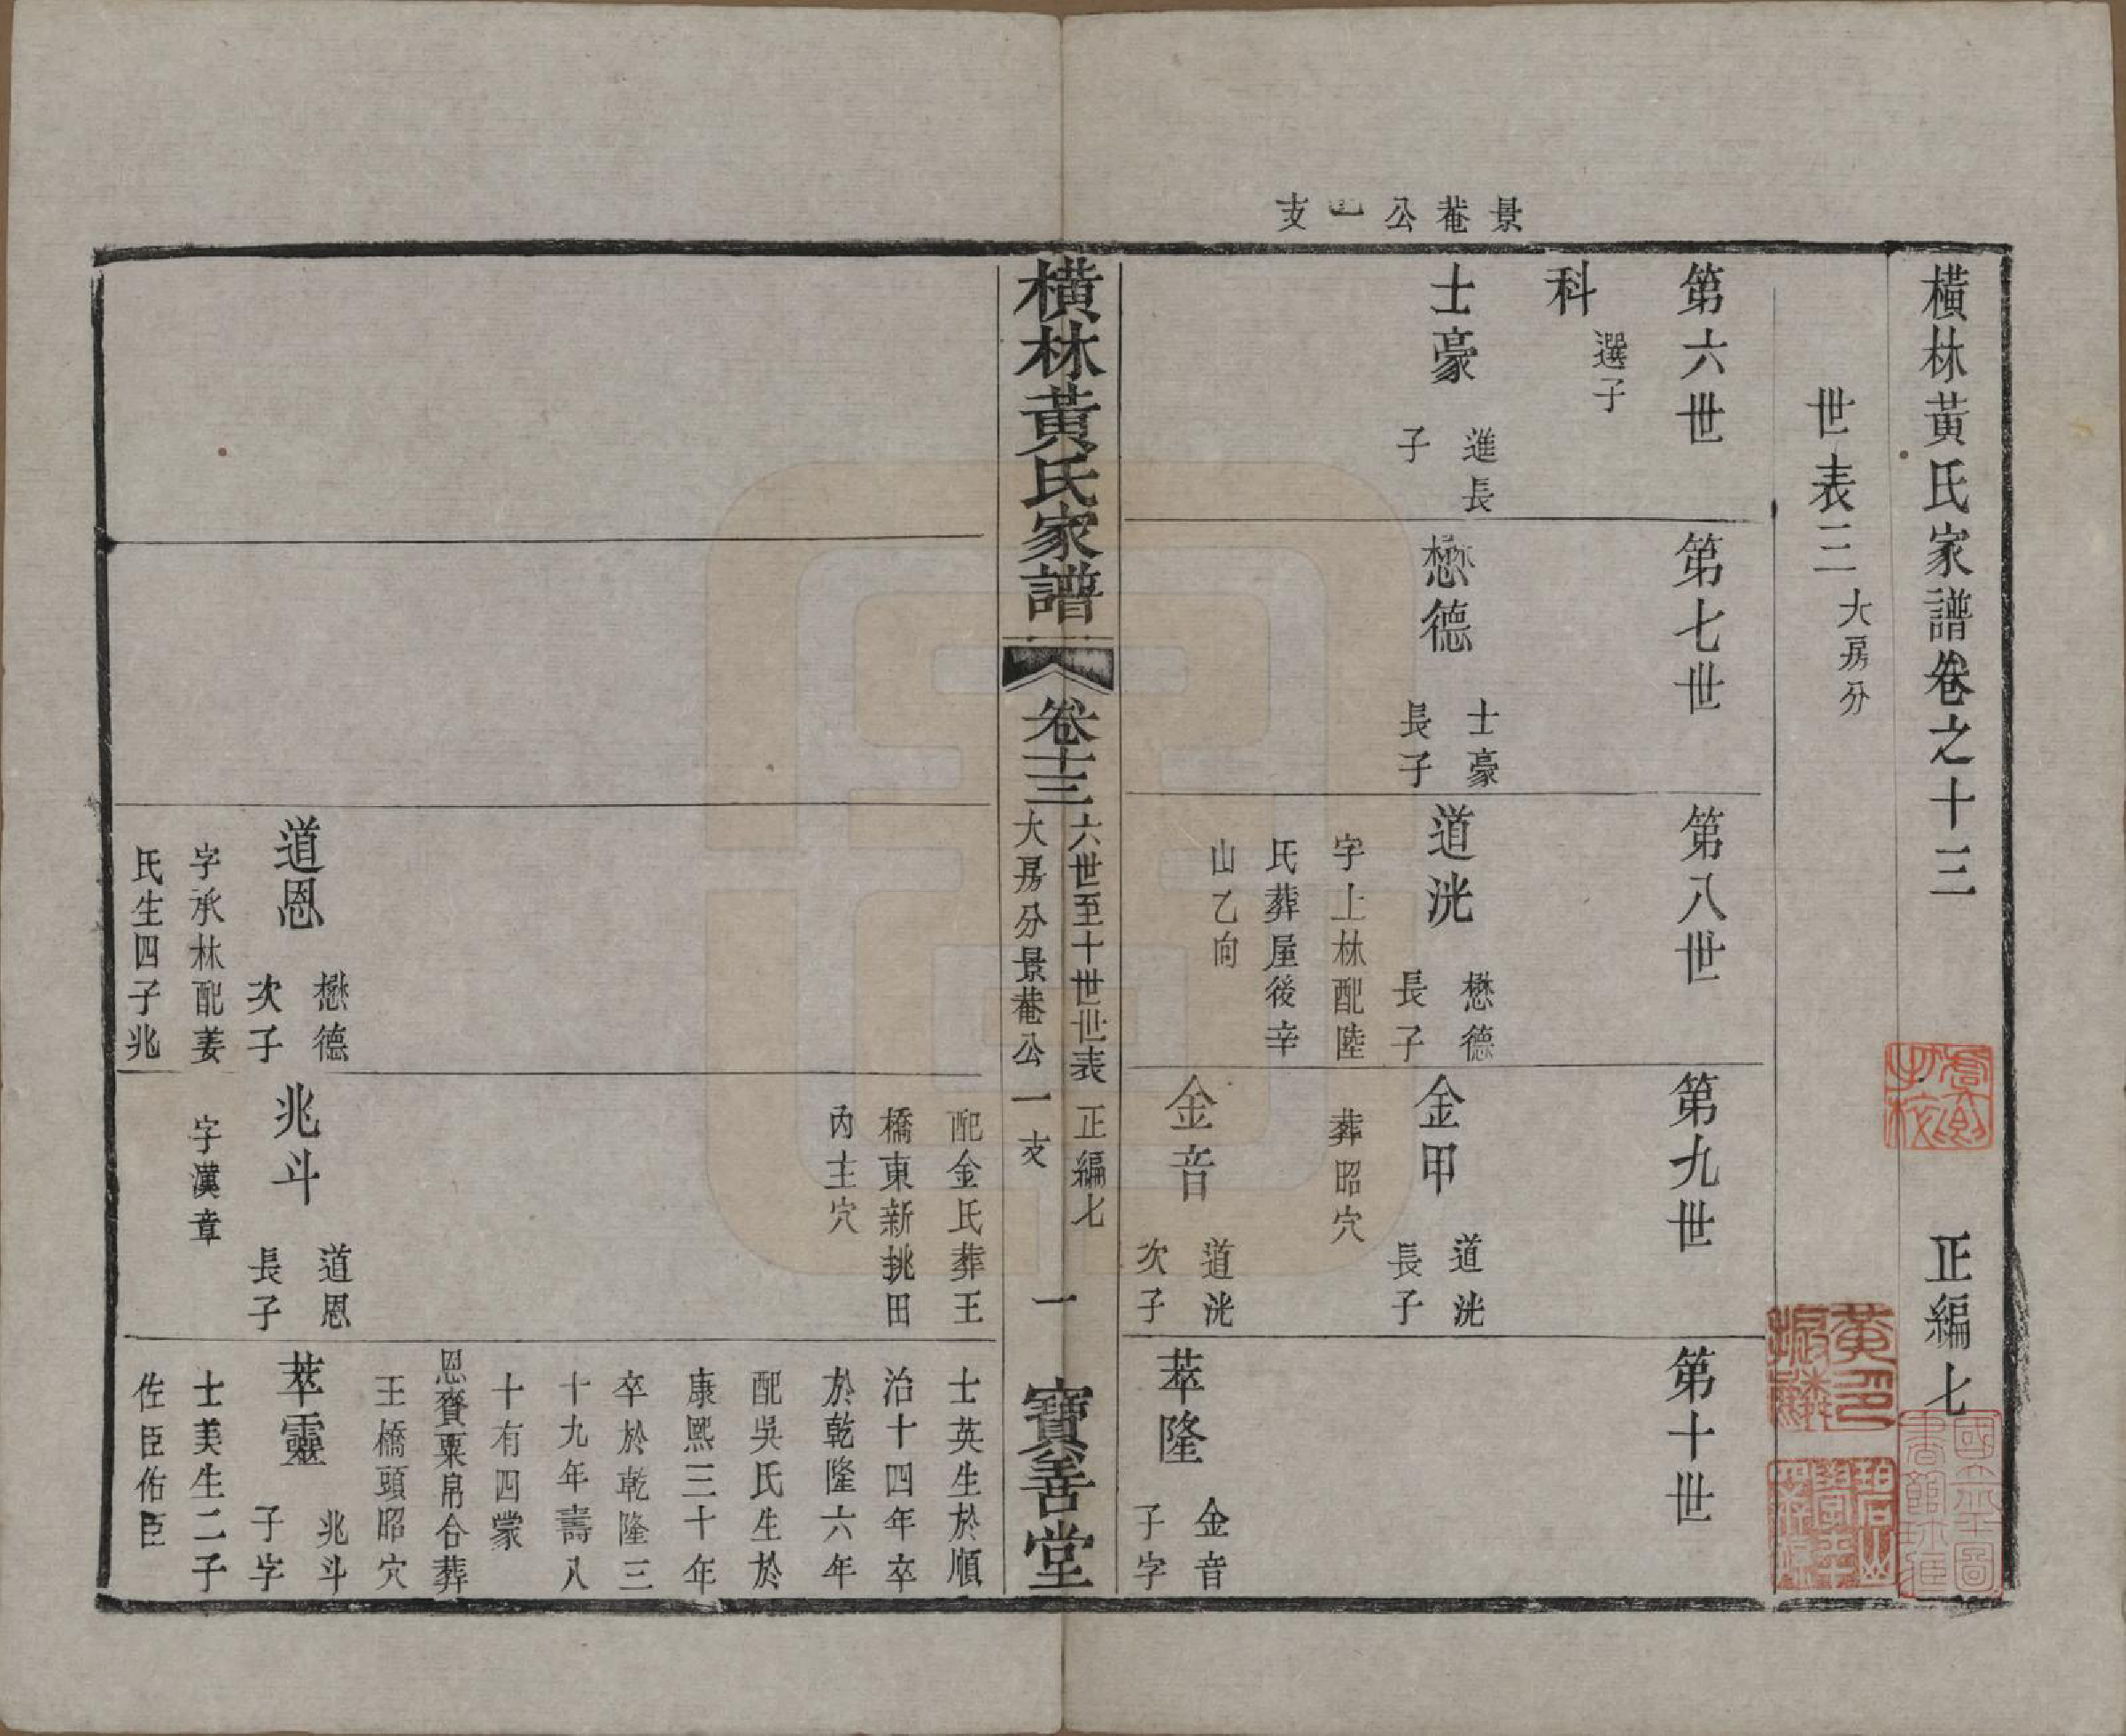 橫林黃氏家譜卷之十三　正編七
世表三 大房分
景菴公一支
第六世
科 選子
士豪 進長子
第七世
懋德 士豪長子
第八世
道洸 懋德長子
字上林配陸
氏葬屋後辛
山乙向
第九世
金甲 道洸長子
葬昭穴
金音 道洸次子
第十世
萃隆 金音子字
橫林黃氏家譜
卷十三 六世至十世世表 正編七
大房分景菴公一支
一
寶善堂
道恩 懋德次子
字承林配姜
氏生四子兆
配金氏葬王
橋東新挑田
內主穴
兆斗 道恩長子
字漢章
士英生於順
治十四年卒
於乾隆六年
配吳氏生於
康熙三十年
卒於乾隆三
十九年壽八
十有四蒙
恩賚粟帛合葬
王橋頭昭穴
萃靈 兆斗子字
士美生二子
佐臣佑臣
黃印振麟